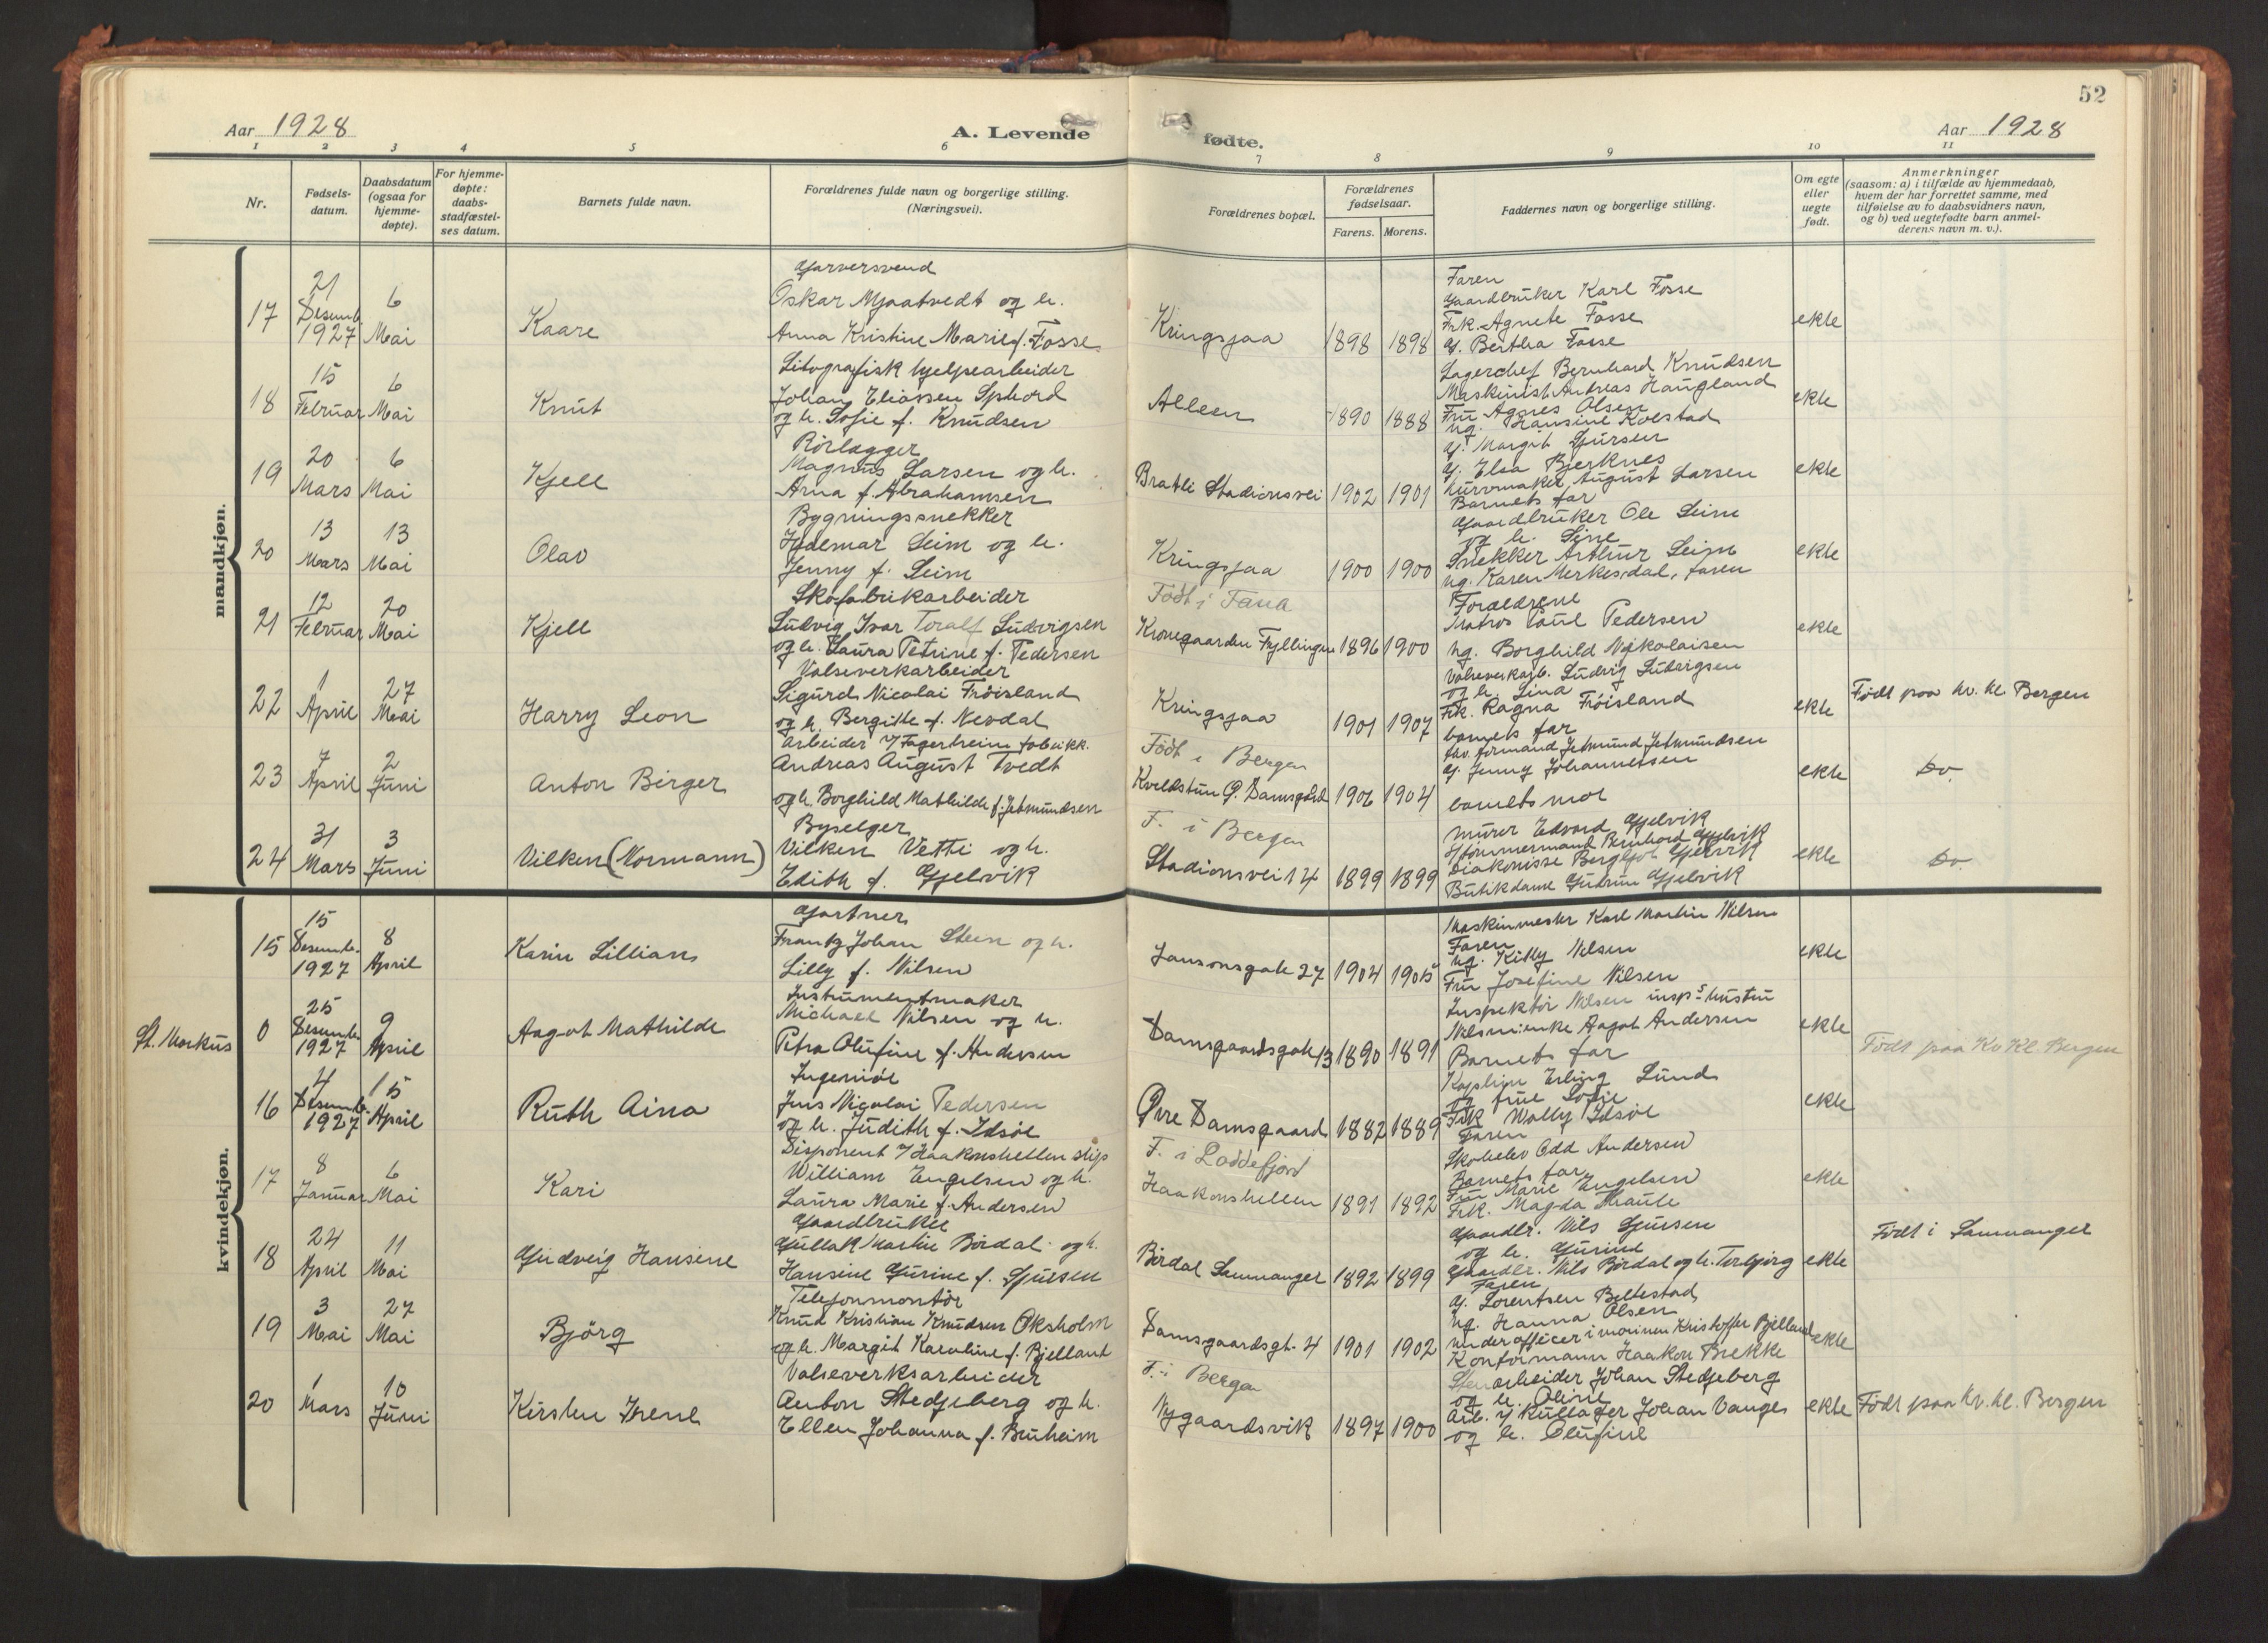 52
Aar 1928
A. Levende
fødte.
Aar 1928
1 2 3 4 5 6 7 8 9 10 11
Nr.
Fødsels-
datum.
Daabsdatum
(ogsaa for
hjemme-
døpte).
For hjemme-
døpte:
daabs-
stadfæstel-
ses datum.
Barnets fulde navn.
Forældrenes fulde navn og borgerlige stilling.
(Næringsvei).
Forældrenes bopæl.
Forældrenes
fødselsaar.
Farens. Morens.
Faddernes navn og borgerlige stilling.
Om egte
eller
uegte
født.
Anmerkninger
(saasom: a) i tilfælde av hjemmedaab,
hvem der har forrettet samme, med
tilføielse av to daabsvidners navn,
og b) ved uegtefødte barn anmel-
derens navn m. v.).
mandkjøn.
17
21
Desemb
1927
6
Mai
Kaare
Garversvend
Oskar Mjaatvedt og h.
Anna Kristine Marie f. Fosse
Kringsjaa
1898 1898
Faren
Gaardbruker Karl Fosse
Frk. Agnete Fosse
G. Bertha Fosse
ekte
18
15
Februar
6
Mai
Knut
Litografisk hjelpearbeider
Johan Eliassen Sphord
og h. Sofie f. Knudsen
Alleen
1890 1888
Lagerchef Bernhard Knudsen
Maskinist Andreas Haugland
Fru Agnes Olsen
Ug. Hansine Kolstad
ekte
19
20
Mars
6
Mai
Kjell
Rörlægger
Magnus Larsen og h.
Arna f. Abrahamsen
Bratli Stadionsvei
1902 1901
G. Margit Gjursen
G. Elsa Bjerknes
Kurvmaker August Larsen
Barnets far
ekte
20
13
Mars
13
Mai
Olav
Bygningssnekker
Hjalmar Seim og h.
Jenny f. Seim
Kringsjaa
1900 1900
Gaardbruker Ole Seim
og h. Line
Snekker Arthur Seim
Ug. Karen Merkesdal, faren
ekte
21
12
Februar
20
Mai
Kjell
Skofabrikarbeider
Ludvig Ivar Toralf Ludvigsen
og h. Laura Petrine f. Pedersen
Födt i Fana
Kronegaarden Fyllingen
1896 1900
Foraeldrene
Matros Paul Pedersen
Ug. Borghild Nikolaisen
ekte
22
1
April
27
Mai
Harry Leon
Valseverkarbeider
Sigurd Nicolai Fröisland
og h. Bergitte f. Nesdal
Kringsjaa
1901 1907
Valseverkarb. Ludvig Ludvigsen
og h. Lina
Frk. Ragna Fröisland
barnets far
ekte
Födt paa kv. kl. Bergen
23
7
April
2
Juni
Anton Birger
Arbeider v/ Fagerheim fabrikk.
Andreas August Tvedt
og h. Borghild Mathilde f. Jetmundsen
Födt i Bergen
Kveldstun Ö. Damsgård
1906 1904
fhv. formand Jetmund Jetmundsen
G. Jenny Johannessen
barnets mor
ekte
Do.
24
31
Mars
3
Juni
Vilken (Normann)
Byselger
Vilken Vetti og h.
Edith f. Gjelvik
F. i Bergen
Stadionsvei 14
1899 1899
Murer Edvard Gjelvik
Tömmermand Reinhard Gjelvik
Diakonisse Bergljot Gjelvik
Butikdame Gudrun Gjelvik
ekte
Do.
kvindekjøn.
15
15
Desembr.
1927
8
April
Karin Lillian
Gartner
Frantz Johan Steen og h.
Lilly f. Nilsen
Jansonsgate 27
1904 1905
Maskinmester Karl Martin Nilsen
Faren
Ug. Kitty Nilsen
Fru Josefine Nilsen
ekte
St. Markus
0
25
Desembr
1927
9
April
Aagot Mathilde
Instrumentmaker
Michael Nilsen og h.
Petra Olufine f. Andersen
Damsgaardsgate 13
1890 1891
Inspektör Nilsen insp.s hustru
Aagot Andersen
Barnets far
ekte
Födt paa Kv Kl. Bergen
16
4
Desemb.
1927
15
April
Ruth Aina
Ingeniör
Jens Nicolai Pedersen
og h. Judith f. Idsöe
Øvre Damsgaard
1882 1889
Kaptein Erling Lund
og frue Sofie
Frk Wally Idsöe
Faren
ekte
17
8
Januar
6
Mai
Kari
Disponent v/ Haakonshellen slip
William Engelsen og h.
Laura Marie f. Andersen
F. i Loddefjord
Haakonshellen
1891 1892
Skohelev Odd Andersen
Barnets far
Fru Marie Engelsen
Frk. Magda Thaule
ekte
18
24
April
11
Mai
Gudveig Hansine
Gaardbruker
Gullak Martin Bördal og h.
Hansine Gurine f. Gjuesen
Bördal Samnanger
1892 1899
Gaardbr. Nils Gjuesen
og h. Gurine
Gaardbr. Nils Bördal og h. Torbjörg
Faren
ekte
Födt i Samnanger
19
3
Mai
27
Mai
Björg
Telefonmontör
Knud Kristian Knudsen Oksholm
og h. Margit Karoline f. Bjelland
Damsgaardsgt. 4
1901 1902
G. Lorentsen Bellestad
Ug. Hanna Olsen
Underofficer i marinen Kristoffer Bjelland
Kontormann Haakon Brekke
ekte
20
1
Mars
10
Juni
Kirsten Irene
Valseverksarbeider
Anton Stedjeberg og h.
Ellen Johanna f. Bruheim
F. i Bergen
Nygaardsvik
1897 1900
Stenarbeider Johan Stedjeberg
og h. Oline
Arb. v/ kullager Johan Vanges
og h. Olufine
ekte
Födt paa kv. kl. Bergen